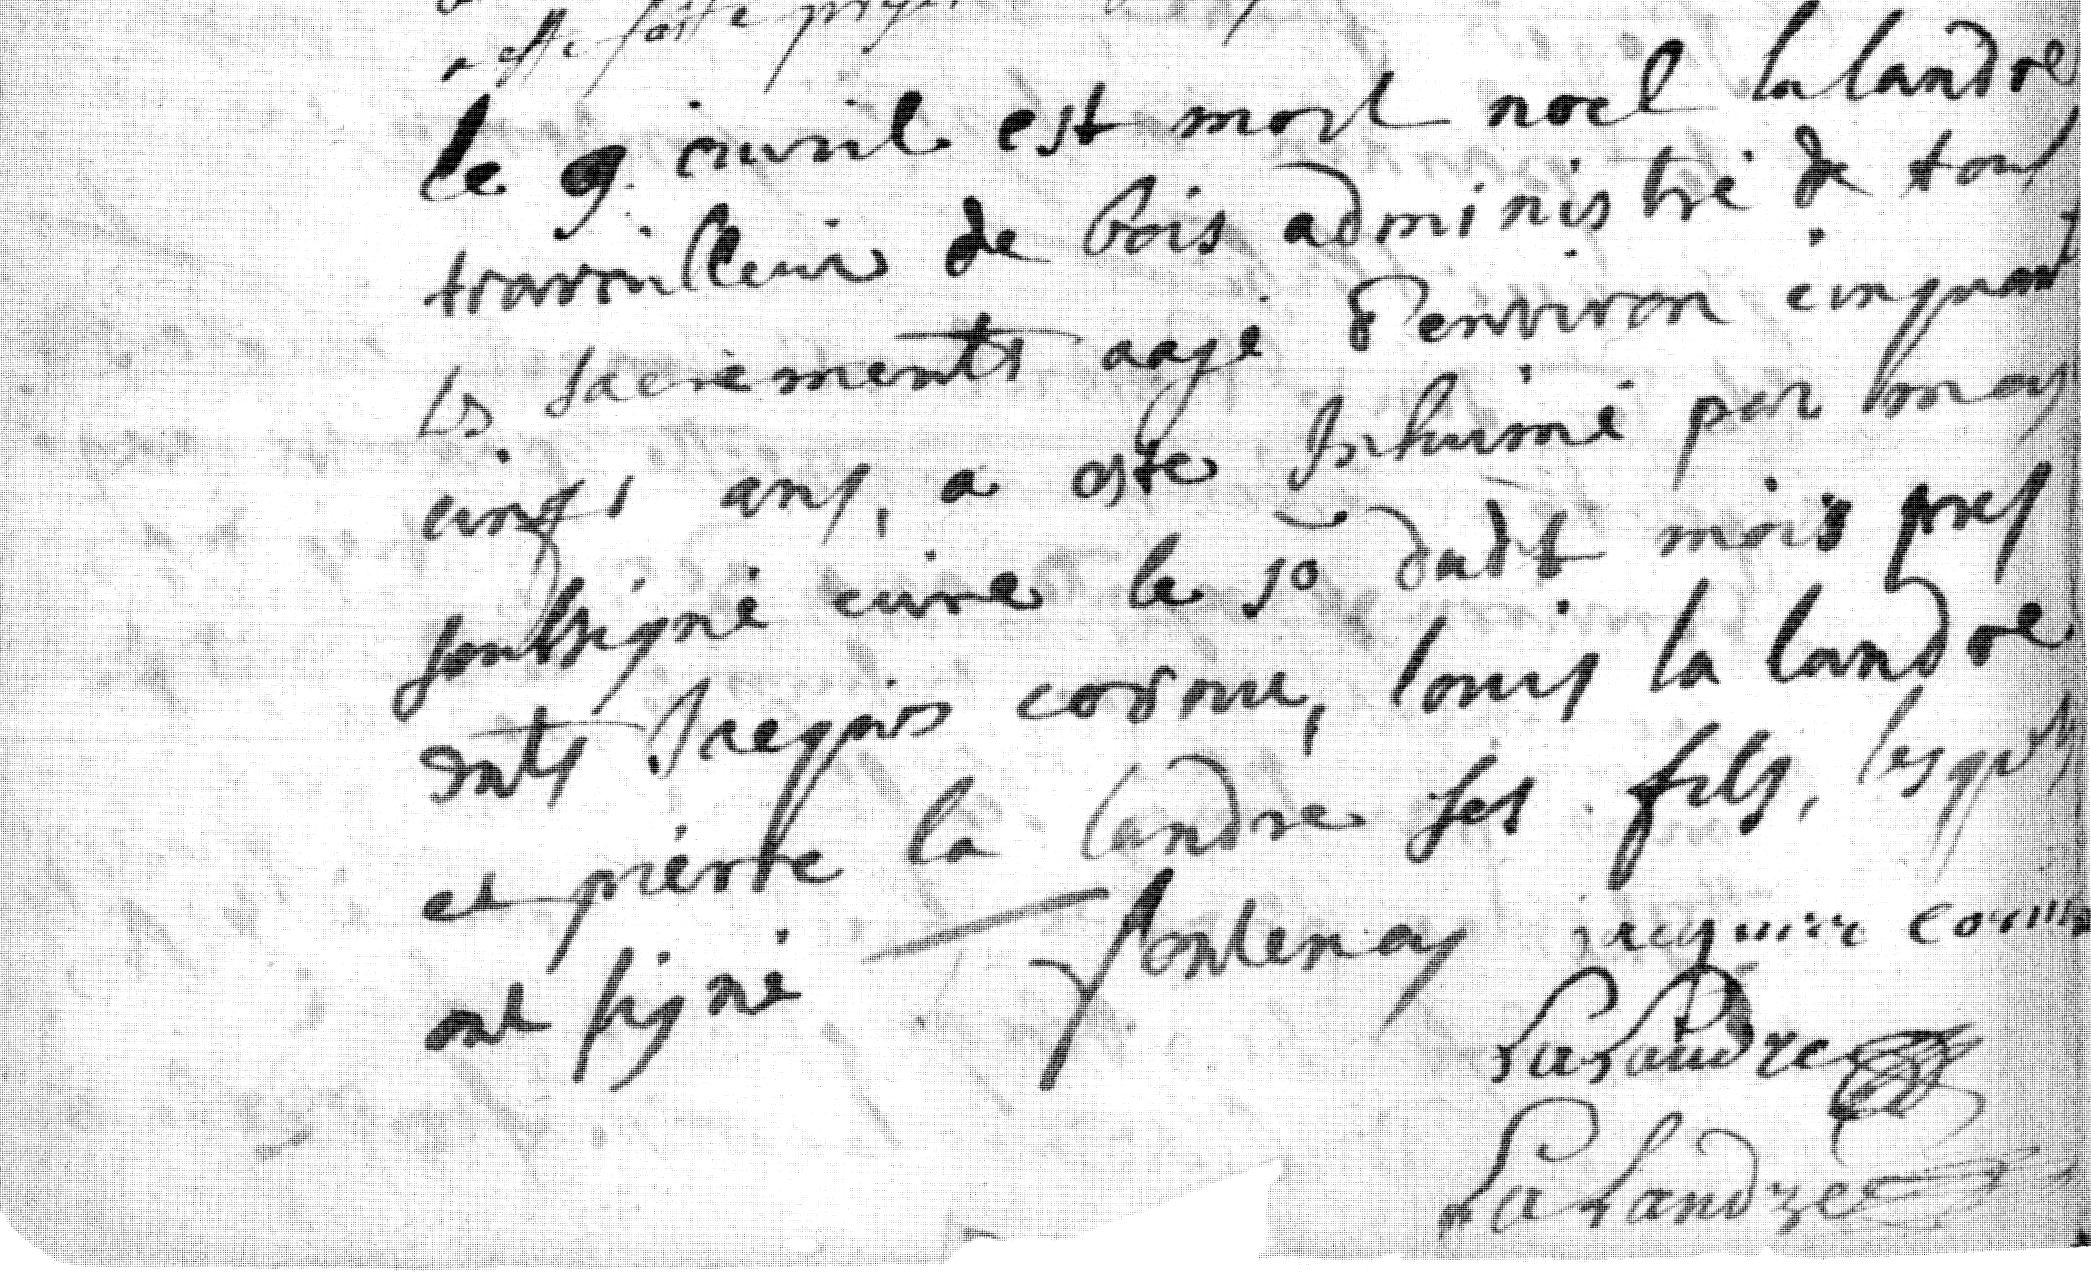 le 9. avril est mort noel la landre
travailleur de bois administré de tous
les sacrements aagé d'environ cinquant
cinqs ans, a esté Inhumé par moy
soubsigné curé le 10 dudt mois pres
ents cormie, louis la landre
et pierre la landre ses fils, lesqls
ont signé fontenay
La Landre
La Landre